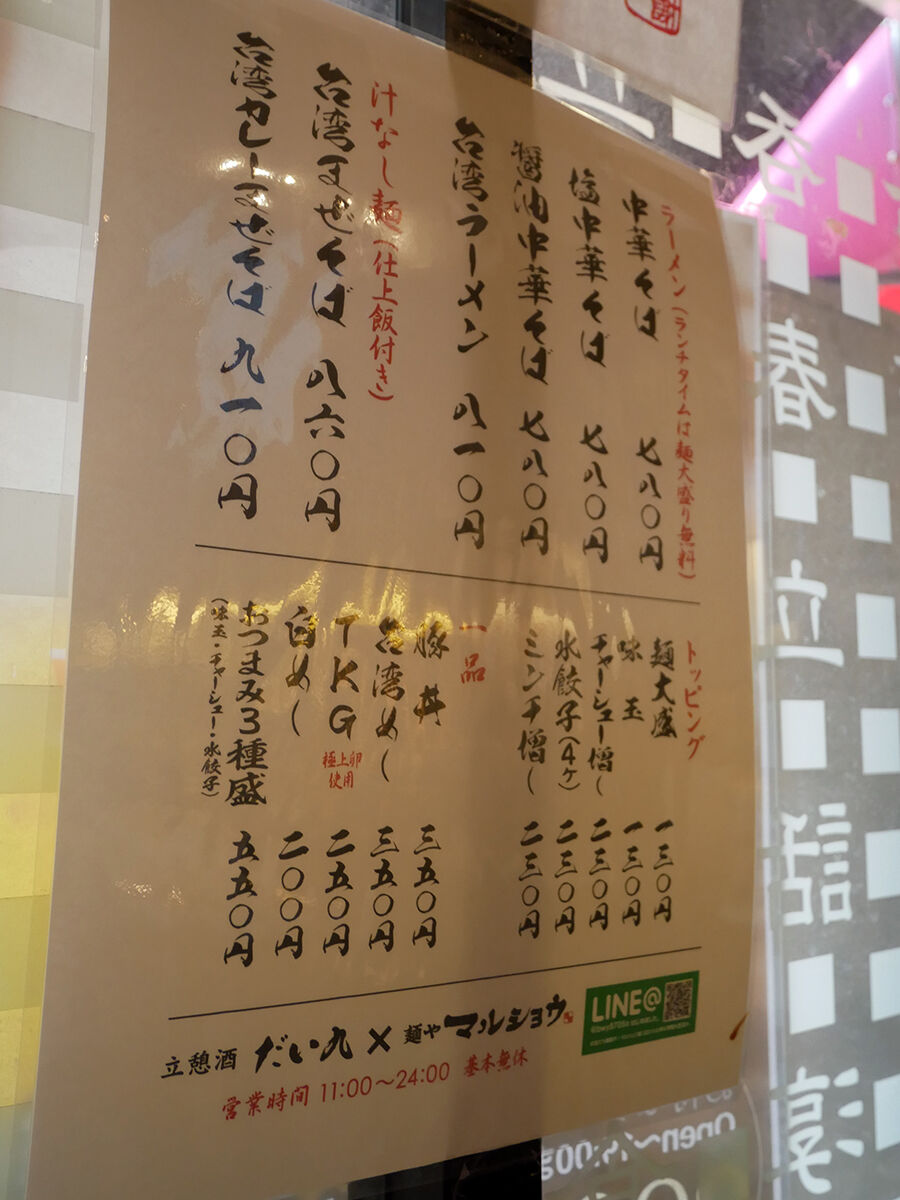 ラーメン（ランチタイムは麺大盛り無料）
中華そば 七八〇円
塩中華そば 七八〇円
醤油中華そば 七八〇円
台湾ラーメン 八一〇円
汁なし麺（仕上飯付き）
台湾まぜそば 八六〇円
台湾カレーまぜそば 九一〇円
トッピング
麺大盛 一三〇円
味玉 一三〇円
チャーシュー増し 二三〇円
水餃子（4ヶ） 二三〇円
ミンチ増し 二三〇円
一品
豚丼 三五〇円
台湾めし 三五〇円
TKG 極上卵使用 二五〇円
白めし 二〇〇円
おつまみ3種盛 五五〇円
（味玉・チャーシュー・水餃子）
立憩酒 だい九×麺や マルショウ
営業時間 11:00～24:00 基本無休
LINE@
春
立
話
淳